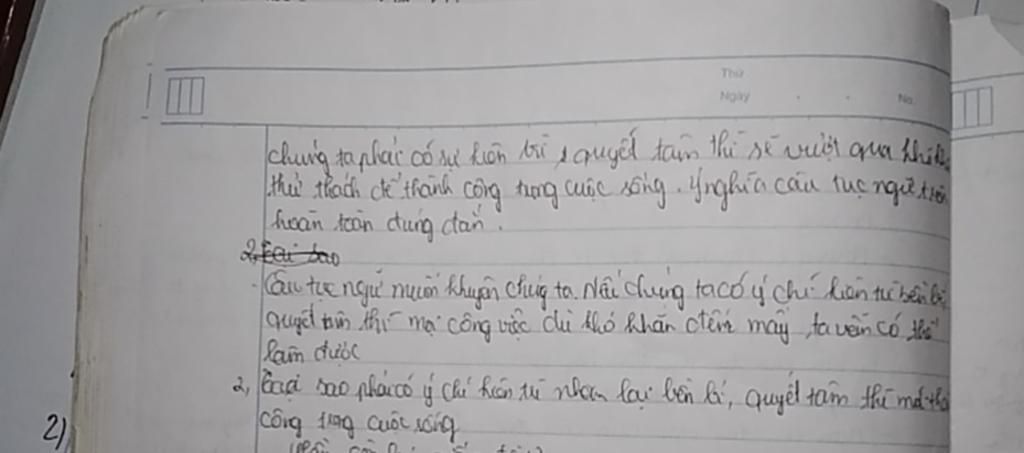 Thứ
Ngày No.
chúng ta phải có sự kiên trì, quyết tâm thì sẽ vượt qua
thử thách để thành công trong cuộc sống. Ý nghĩa câu tục ngữ trên
hoàn toàn đúng đắn.
2,
Câu tục ngữ muốn khuyên chúng ta. Nếu chúng ta có ý chí kiên trì bền bỉ
quyết tâm thì mọi công việc dù khó khăn đến mấy ta vẫn có thể
làm được
2, tại sao phải có ý chí kiên trì nhẫn lại bền bỉ, quyết tâm thì mới
công trong cuộc sống
2)